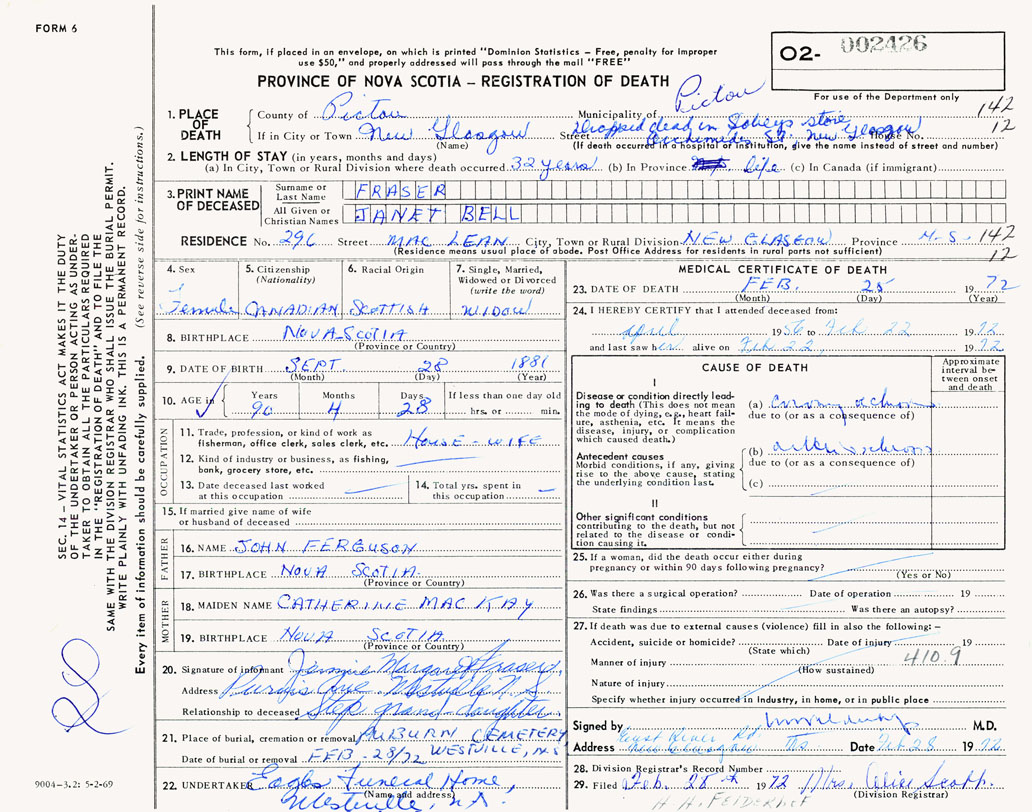 FORM 6
This form, if placed in an envelope, on which is printed "Dominion Statistics – Free, penalty for improper
use $50," and properly addressed will pass through the mail "FREE"
O2- 002426
PROVINCE OF NOVA SCOTIA – REGISTRATION OF DEATH
For use of the Department only
1. PLACE OF DEATH
County of Pictou Municipality of Pictou 142
If in City or Town New Glasgow Street Dropped dead in store New Glasgow House No. 12
(Name) (If death occurred in a hospital or institution, give the name instead of street and number)
2. LENGTH OF STAY (in years, months and days)
(a) In City, Town or Rural Division where death occurred 32 years (b) In Province life (c) In Canada (if immigrant)
3. PRINT NAME OF DECEASED
Surname or Last Name FRASER
All Given or Christian Names JANET BELL
RESIDENCE No. 296 Street MAC LEAN City, Town or Rural Division NEW GLASGOW Province N.S. 142
(Residence means usual place of abode. Post Office Address for residents in rural parts not sufficient) 12
4. Sex Female
5. Citizenship (Nationality) CANADIAN
6. Racial Origin SCOTTISH
7. Single, Married, Widowed or Divorced (write the word) WIDOW
8. BIRTHPLACE NOVA-SCOTIA
(Province or Country)
9. DATE OF BIRTH SEPT. 28 1881
(Month) (Day) (Year)
10. AGE in Years 90 Months 4 Days 28 If less than one day old hrs. or min.
OCCUPATION
11. Trade, profession, or kind of work as fisherman, office clerk, sales clerk, etc. HOUSE-WIFE
12. Kind of industry or business, as fishing, bank, grocery store, etc.
13. Date deceased last worked at this occupation
14. Total yrs. spent in this occupation
15. If married give name of wife or husband of deceased
FATHER
16. NAME JOHN FERGUSON
17. BIRTHPLACE NOVA SCOTIA
(Province or Country)
MOTHER
18. MAIDEN NAME CATHERINE MAC KAY
19. BIRTHPLACE NOVA SCOTIA
(Province or Country)
20. Signature of informant Margaret Fraser
Address Ave Westville N.S
Relationship to deceased Step grand-daughter
21. Place of burial, cremation or removal AUBURN CEMETERY
WESTVILLE, N.S
Date of burial or removal FEB-28/72
22. UNDERTAKER Eagles Funeral Home,
(Name and address)
Westville, N.S.
MEDICAL CERTIFICATE OF DEATH
23. DATE OF DEATH FEB. 25 1972
(Month) (Day) (Year)
24. I HEREBY CERTIFY that I attended deceased from:
April 1956 to Feb 22 1972
and last saw her alive on Feb 22, 1972
CAUSE OF DEATH
Approximate interval between onset and death
I
Disease or condition directly leading to death (This does not mean the mode of dying, e.g., heart failure, asthenia, etc. It means the disease, injury, or complication which caused death.)
(a)
due to (or as a consequence of)
Antecedent causes
Morbid conditions, if any, giving rise to the above cause, stating the underlying condition last.
(b)
due to (or as a consequence of)
(c)
II
Other significant conditions contributing to the death, but not related to the disease or condition causing it.
25. If a woman, did the death occur either during
pregnancy or within 90 days following pregnancy?
(Yes or No)
26. Was there a surgical operation? Date of operation 19
State findings Was there an autopsy?
27. If death was due to external causes (violence) fill in also the following: –
Accident, suicide or homicide? Date of injury 19
(State which)
Manner of injury 410.9
(How sustained)
Nature of injury
Specify whether injury occurred in Industry, in home, or in public place
Signed by M.D.
Address East River Rd New Glasgow N.S. Date Feb 28 1972
28. Division Registrar's Record Number
29. Filed Feb. 28th 1972 Mrs. Alice Scott
(Division Registrar)
SEC. 14 – VITAL STATISTICS ACT MAKES IT THE DUTY
OF THE UNDERTAKER OR PERSON ACTING AS UNDER-
TAKER TO OBTAIN ALL THE PARTICULARS REQUIRED
IN THE "REGISTRATION OF DEATH" AND TO FILE THE
SAME WITH THE DIVISION REGISTRAR WHO SHALL ISSUE THE BURIAL PERMIT.
WRITE PLAINLY WITH UNFADING INK. THIS IS A PERMANENT RECORD.
Every item of information should be carefully supplied. (See reverse side for instructions.)
9004–3.2: 5-2-69